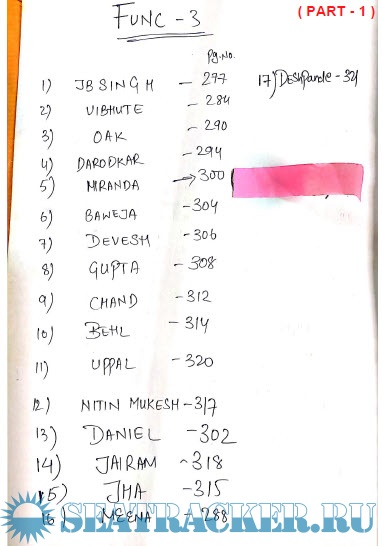 FUNC - 3
( PART - 1 )
Pg.No.
1) JB SINGH - 277
17) Deshpande - 321
2) VIBHUTE - 284
3) OAK - 290
4) DARODKAR - 294
5) MIRANDA → 300
6) BAWEJA - 304
7) DEVESH - 306
8) GUPTA - 308
9) CHAND - 312
10) BEHL - 314
11) UPPAL - 320
12) NITIN MUKESH - 317
13) DANIEL - 302
14) JAIRAM - 318
15) JHA - 315
16) MEENA - 288
SEATRACKER.RU